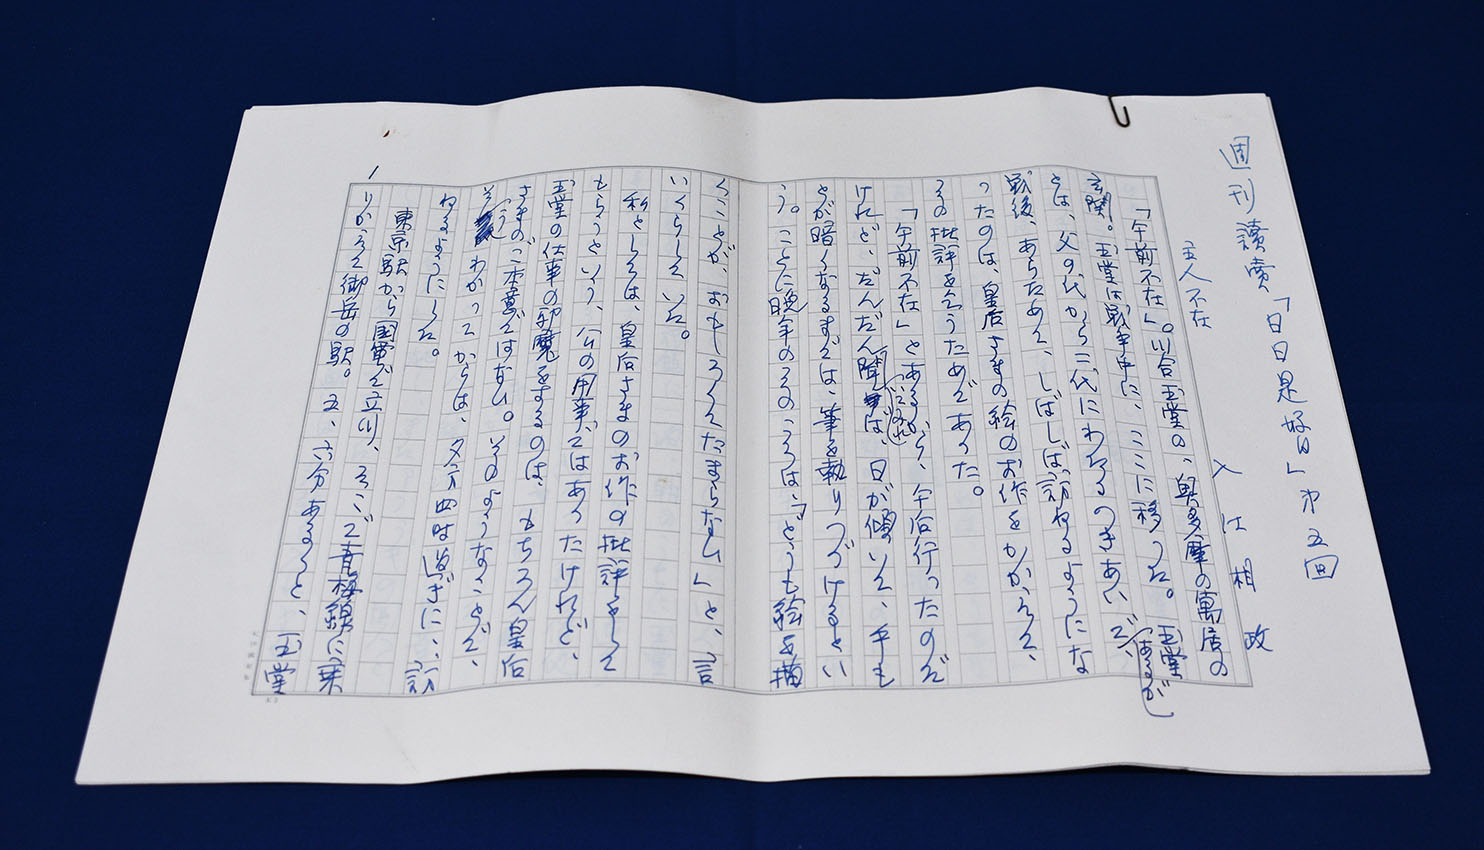 週刊讀賣「日日是好日」第五回
入江相政
主人不在
「午前不在」。川合玉堂の、奥多摩の寓居の
玄関。玉堂は戦争中に、ここに移った。玉堂
とは、父の代から二代にわたるつきあいで、(あるが)
戦後、あらためて、しばしば訪ねるようにな
ったのは、皇后さまの絵のお作をかかえて、
その批評を乞うためであった。
「午前不在」とあるから、午后行ったのだ
けれど、だんだん聞いてみれば、日が傾いて、手も
とが暗くなるまでは、筆を執りつづけるとい
う。ことに晩年のそのころは、「どうも絵を描
くことが、おもしろくてたまらない」と、言
いくらしていた。
私としては、皇后さまのお作の批評をして
もらうという、公の用事ではあったけれど、
玉堂の仕事の邪魔をするのは、もちろん皇后
さまのご本意ではない。そのようなことで、
そうわかってからは、夕方四時過ぎに、訪
ねるようにした。
東京駅から国電で立川、そこで青梅線に乗
りかえて御岳の駅。五、六分あるくと、玉堂
1